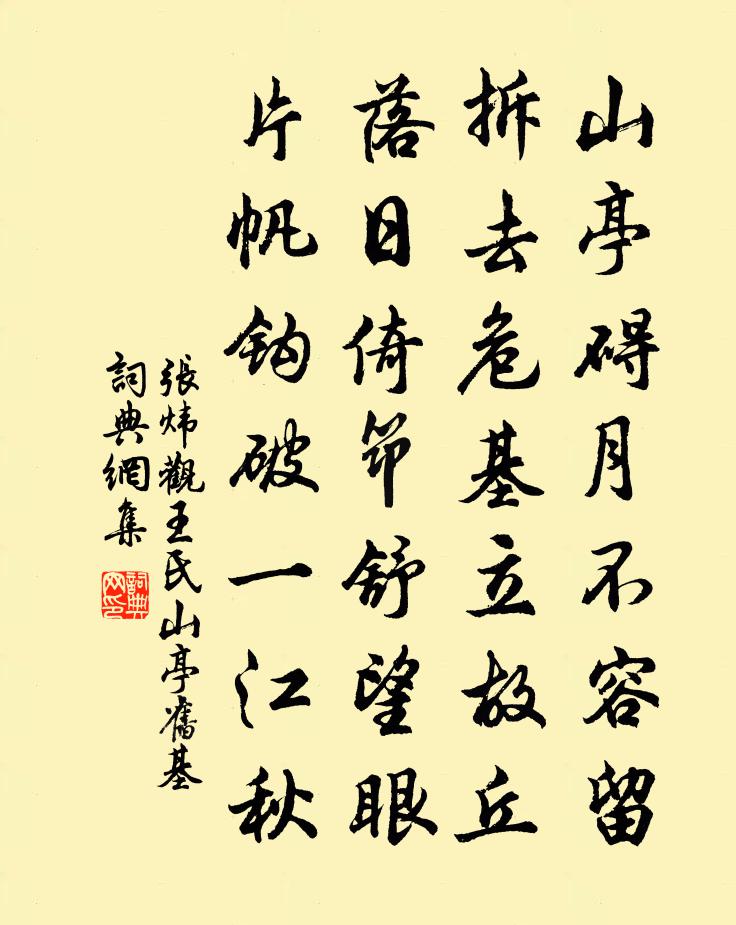 山亭碍月不容留
拆去危基立故丘
落日倚筇舒望眼
片帆鈎破一江秋
張炜觀王氏山亭舊基
詞典網集
詞典网印